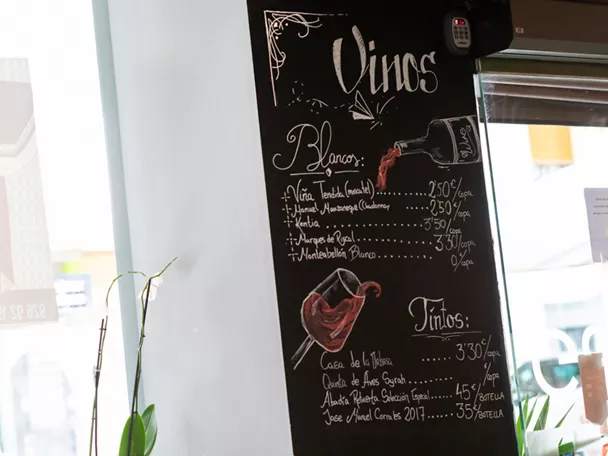 Vinos
Blancos:
Viña Tendida (moscatel) ........ 2'50€/copa
Manuel Manzaneque Chardonnay 2'50€/copa
Kentia ........ 3'50/copa
Marques de Riscal ........ 3'30/copa
Montcabellón Blanco ........ €/copa
Tintos:
Casa de la ...... 3'30€/copa
Quinta de Aves Syrah ...... €/copa
Abadía Retuerta Selección Especial ..... 45€/BOTELLA
Jose Manuel Corrales 2017 ..... 35€/BOTELLA